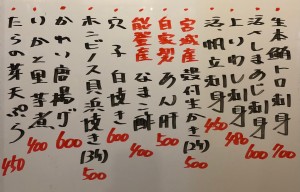 生本鮪トロ刺身 700
活〆しまあじ刺身 600
上いわし刺身 480
活帆立刺身 450
宮城産 殻付生かき(2ケ) 500
自家製 あん肝
能登産 なまこ酢 400
穴子白焼き 600
ホンビノス貝浜焼き(2ケ) 500
かれい唐揚げ 600
いかと里芋煮 400
たらの芽天ぷら 450